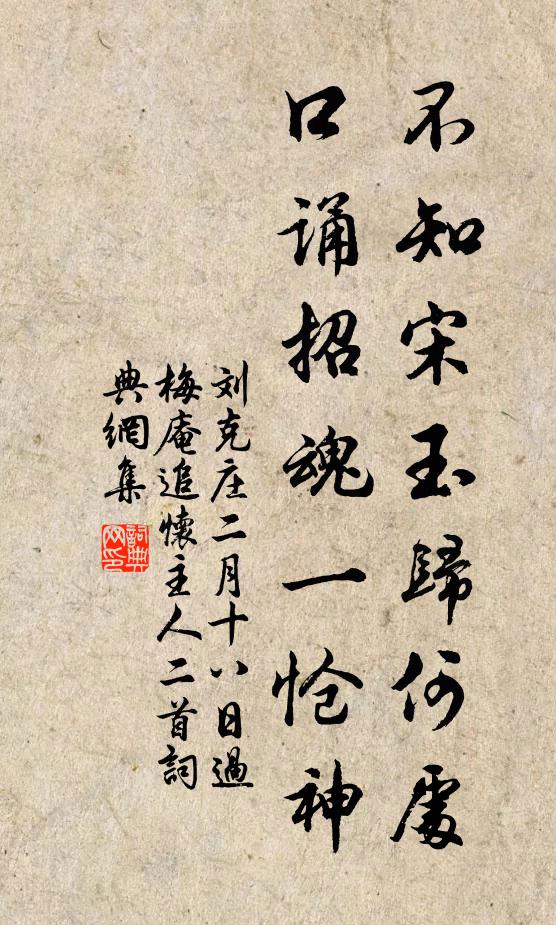 不知宋玉歸何處
口誦招魂一愴神
刘克庄二月十八日過
梅庵追懷主人二首詞
典網集
詞典
网印